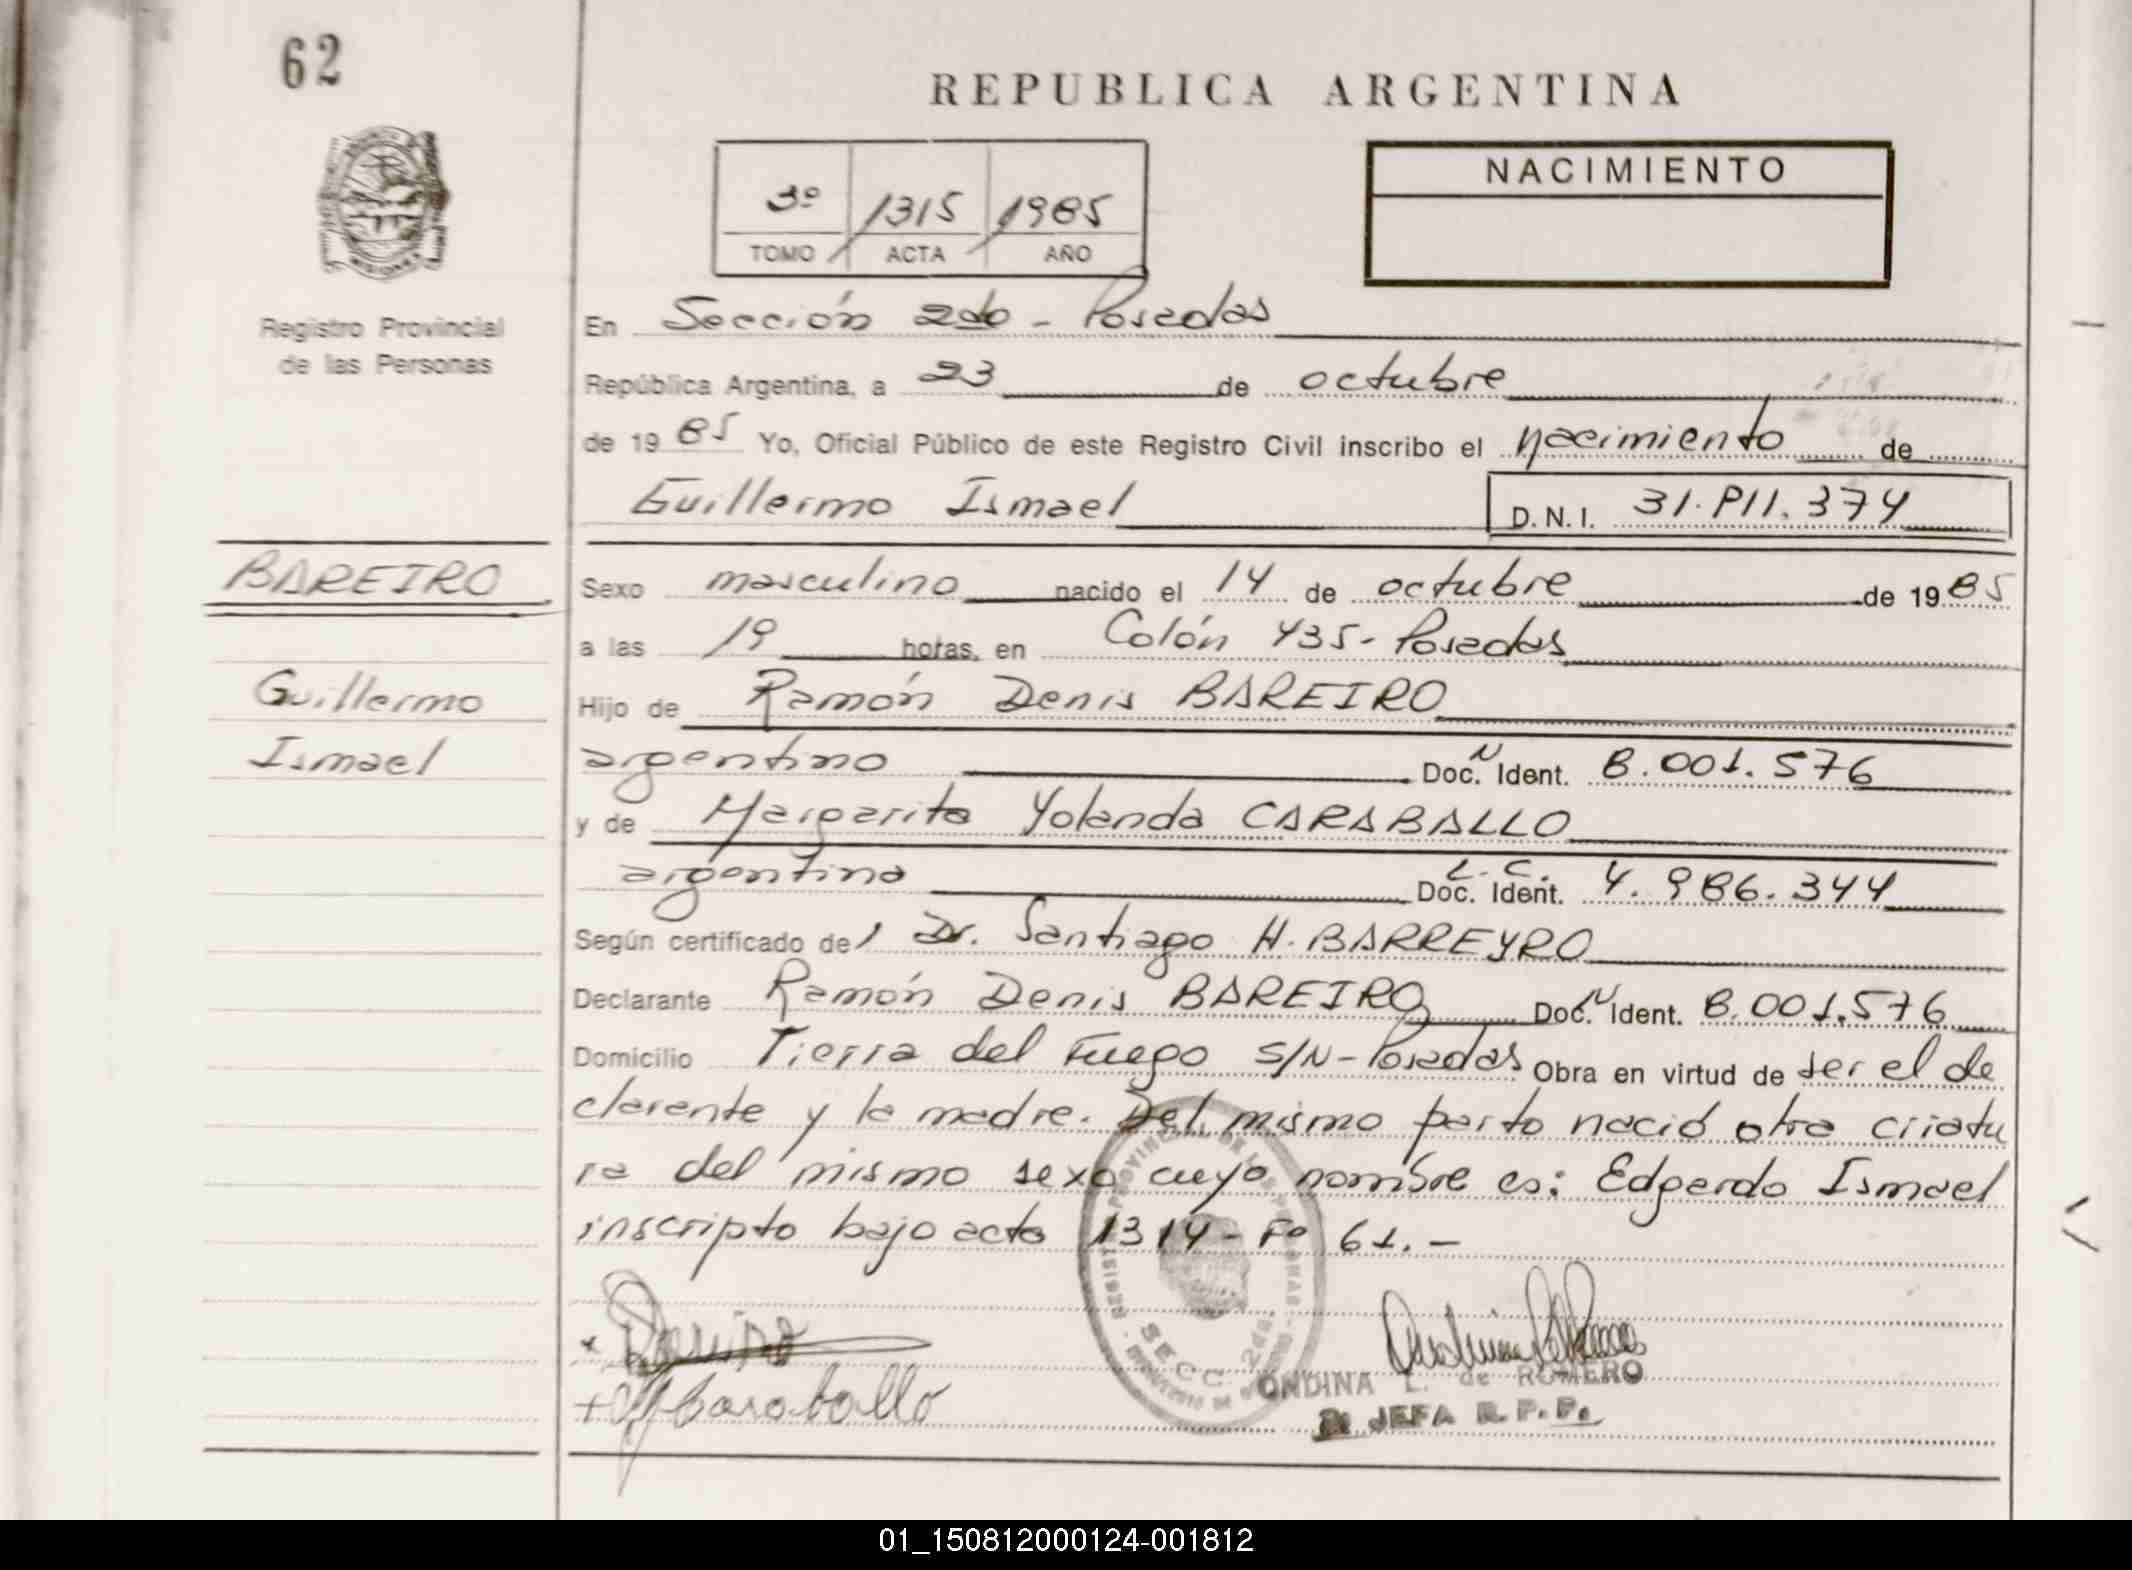 62
REPUBLICA ARGENTINA
NACIMIENTO
3º 1315 1985
TOMO ACTA AÑO
Registro Provincial
de las Personas
En Sección 2da - Posadas
República Argentina, a 23 de octubre
de 1985 Yo, Oficial Público de este Registro Civil inscribo el nacimiento de
Guillermo Ismael D.N.I. 31.811.374
BAREIRO
Guillermo
Ismael
Sexo masculino nacido el 14 de octubre de 1985
a las 19 horas, en Colón 435 - Posadas
Hijo de Ramón Denis BAREIRO
argentino Doc. Ident. 8.001.576
y de Margarita Yolanda CARABALLO
argentina L.C. Doc. Ident. 4.986.344
Según certificado de Dr. Santiago H. BARREYRO
Declarante Ramón Denis BAREIRO Doc. Ident. 8.001.576
Domicilio Tierra del Fuego S/N - Posadas Obra en virtud de ser el de
clarante y la madre. Del mismo parto nació otra criatu
ra del mismo sexo cuyo nombre es: Edgardo Ismael
inscripto bajo acta 1314 - Fº 61. -
SECC. 2da
Caraballo
ONDINA L. de ROMERO
JEFA R. P. P.
01_150812000124-001812